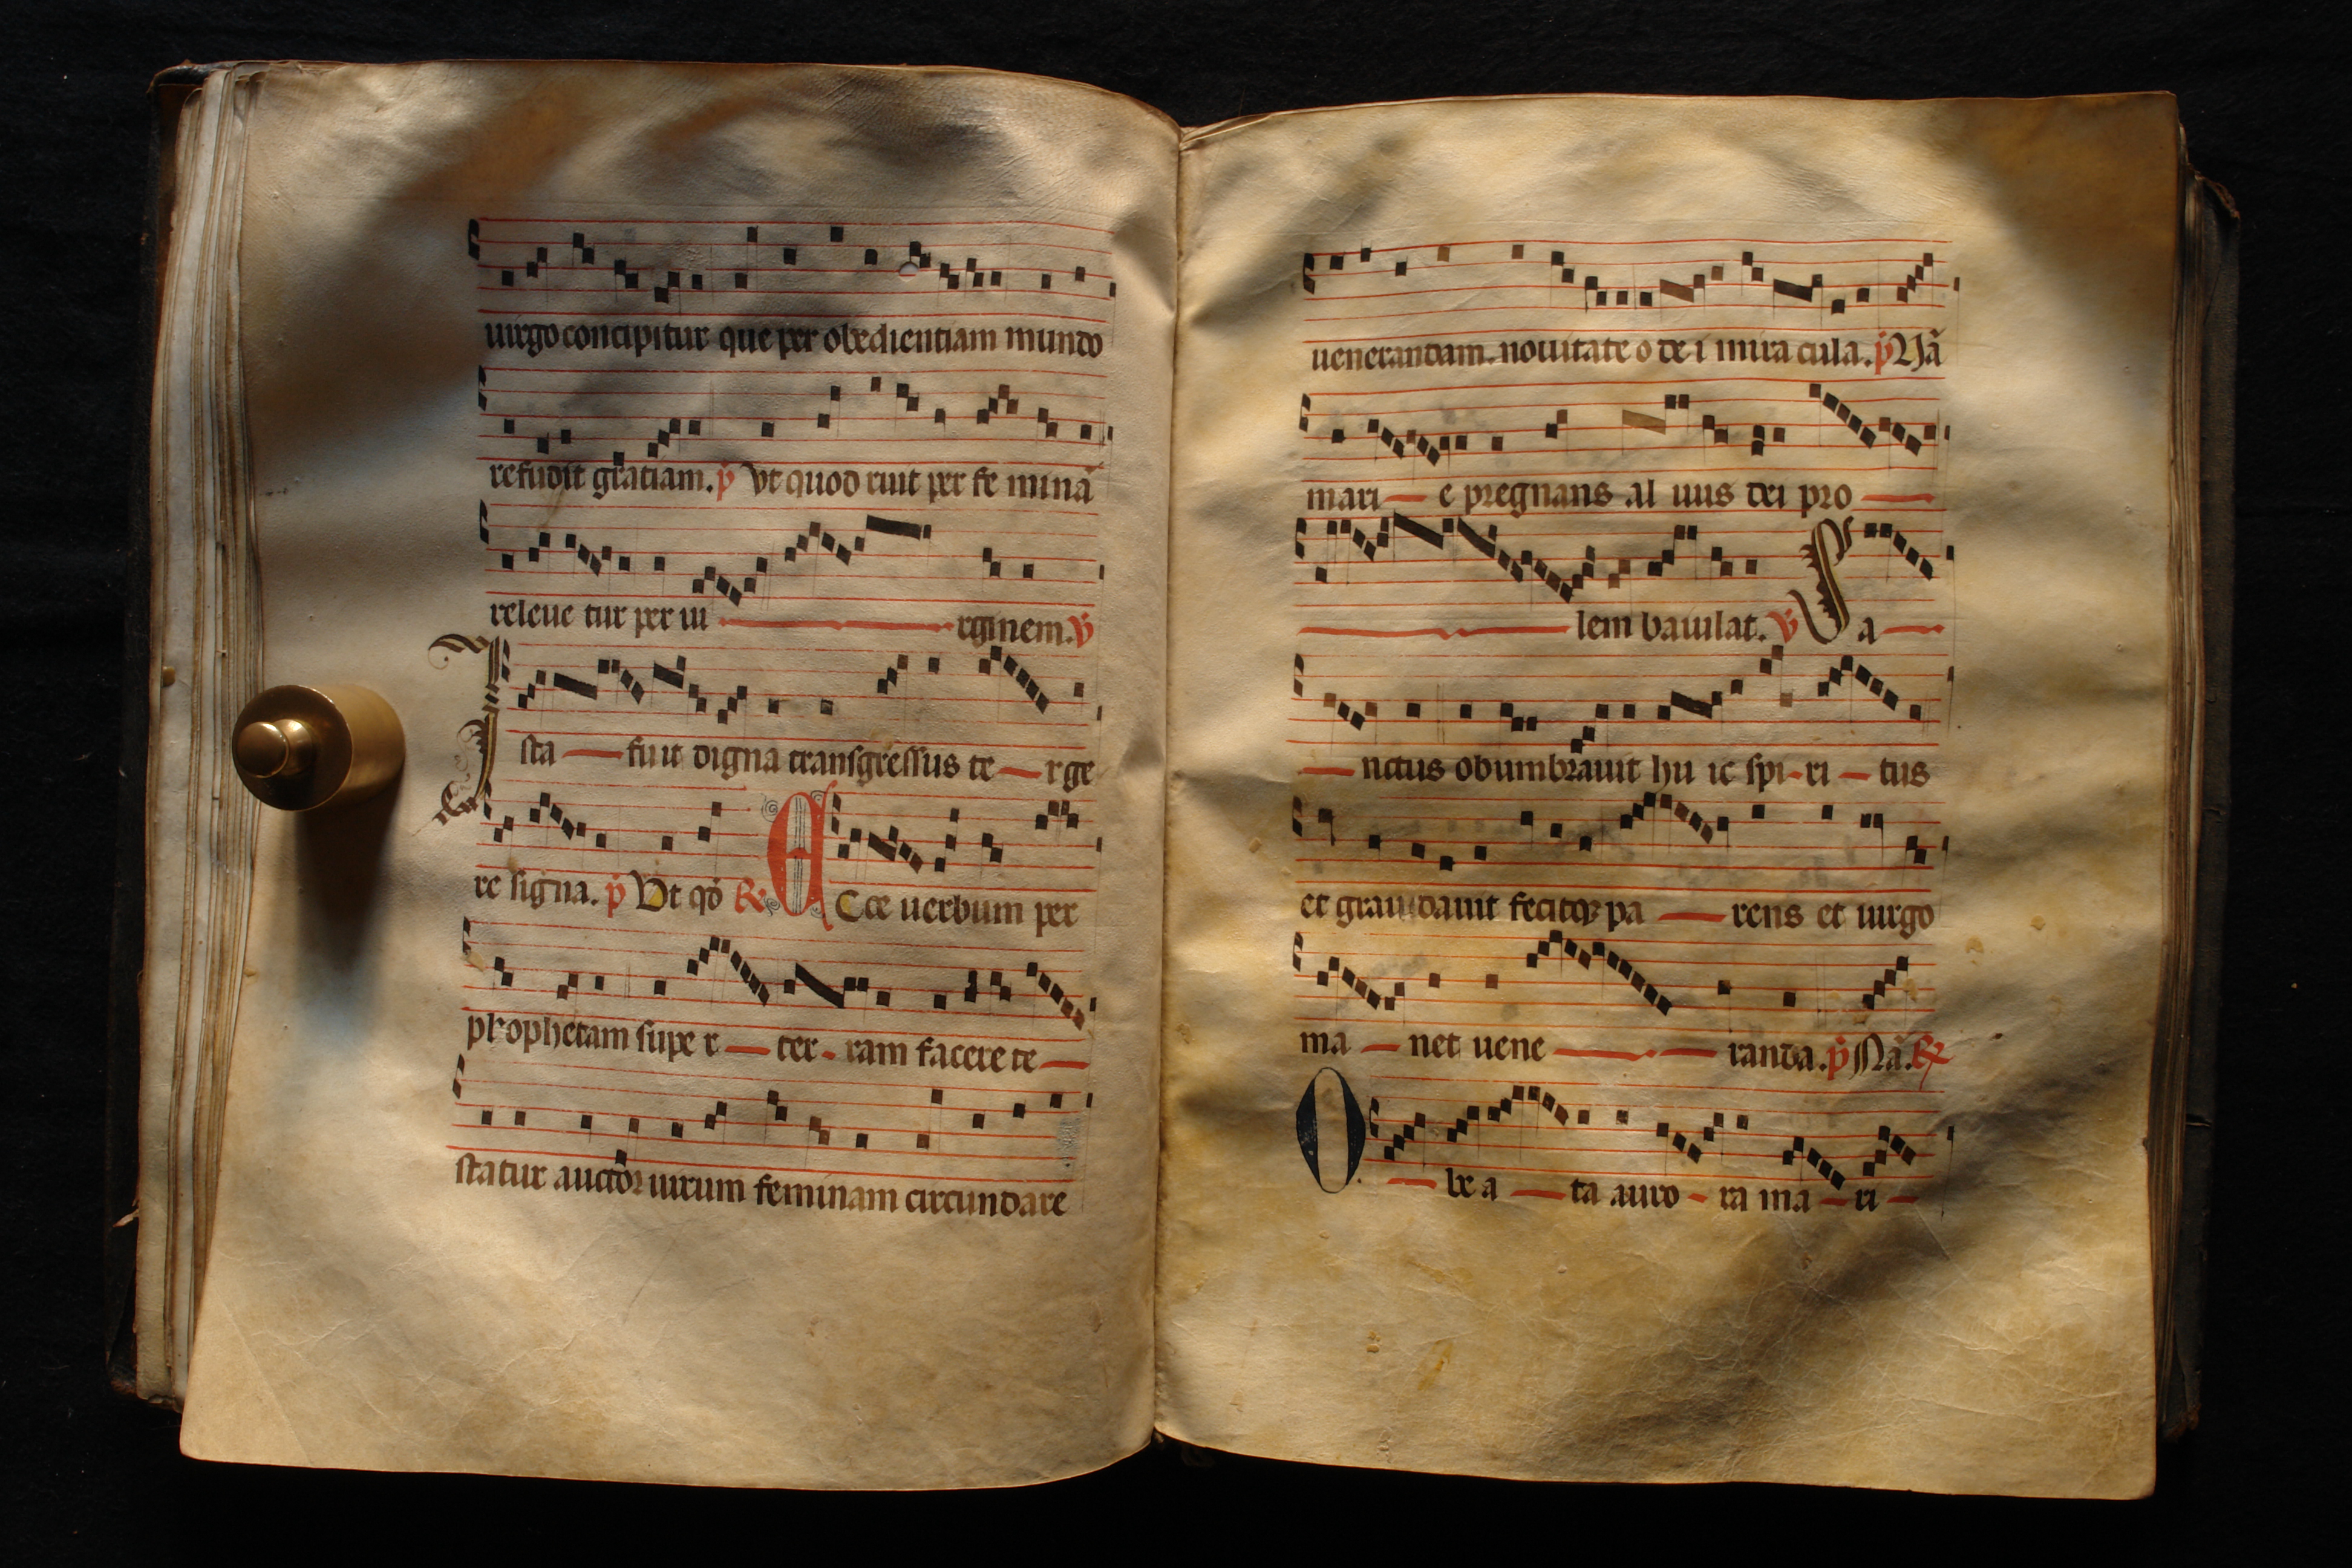 uirgo concipitur que per obedientiam mundo
refudit gratiam. p̄ Vt quod ruit per fe minā
releue tur per ui rginem. V̄
Ista fuit digna transgressus te rge
re signa. p̄ Vt qđ R̄ Ecce uerbum per
prophetam supe r ter ram facere te
statur auctor uirum feminam circundare
uenerandam. nouitate o de i mira cula. p̄ Nā
mari e pregnans al uus dei pro
lem baiulat. V̄ Sa
nctus obumbrauit hu ic spi ri tus
et grauidauit fecitqꝫ pa rens et uirgo
ma net uene randa. p̄ Nā. R̄
O be a ta auro ra ma ri